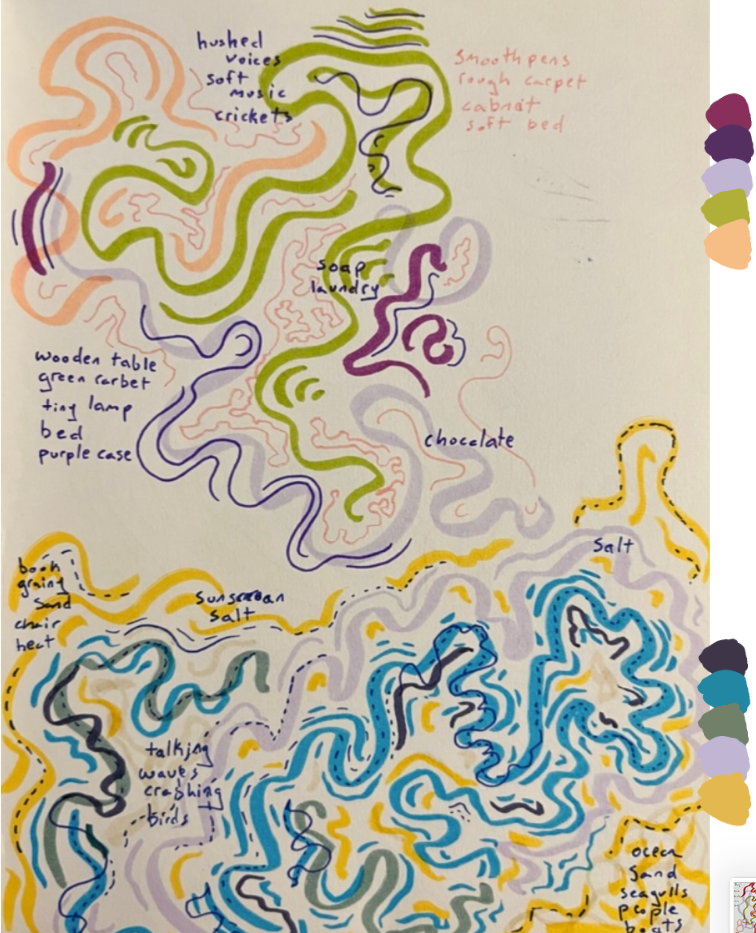 hushed
voices
soft
music
crickets
smooth pens
rough carpet
cabnat
soft bed
soap
laundry
wooden table
green carbet
tiny lamp
bed
purple case
chocolate
book
grainy
sand
chair
heat
sunscrean
salt
salt
talking
waves
crashing
birds
ocean
sand
seagulls
people
boats